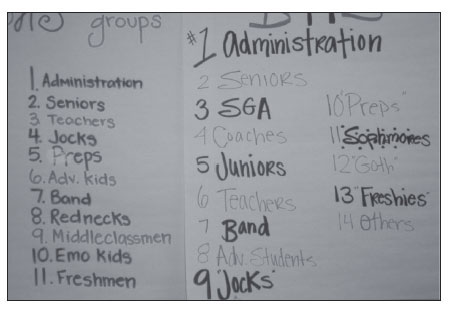 groups
1. Administration
2. Seniors
3 Teachers
4. Jocks
5. Preps
6. Adv. Kids
7. Band
8. Rednecks
9. Middleclassmen
10. Emo Kids
11. Freshmen
#1 Administration
2 Seniors
3 SGA
4 Coaches
5 Juniors
6 Teachers
7 Band
8 Adv. Students
9 "Jocks"
10 "Preps"
11 "Sophmores"
12 "Goth"
13 "Freshies"
14 Others